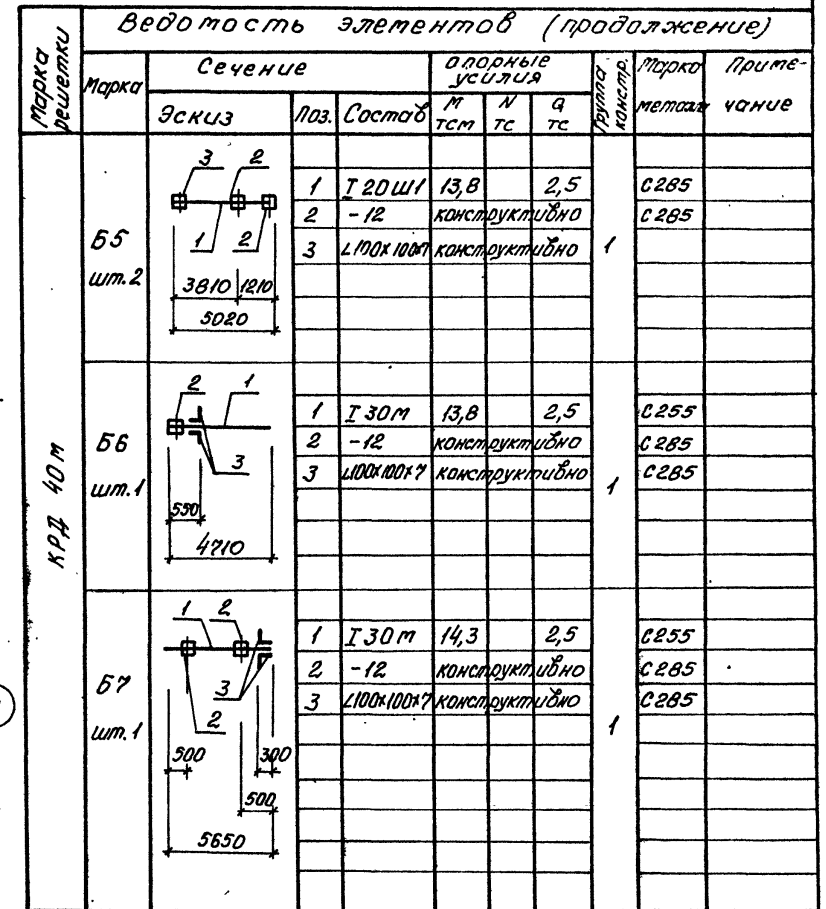 Ведомость элементов (продолжение)
Марка решетки
Марка
Сечение
опорные усилия
Группа констр.
Марка металл
Примечание
Эскиз
Поз.
Состав
М тсм
N тс
Q тс
КРД 40М
Б5 шт.2
3 2
1 2
3810 1210
5020
1 I 20Ш1 13,8 2,5 С285
2 -12 конструктивно С285
3 L100х100х7 конструктивно
1
Б6 шт.1
2 1
3
550
4710
1 I 30М 13,8 2,5 С255
2 -12 конструктивно С285
3 L100х100х7 конструктивно С285
1
Б7 шт.1
1 2
3
2
500 300
500
5650
1 I 30М 14,3 2,5 С255
2 -12 конструктивно С285
3 L100х100х7 конструктивно С285
1